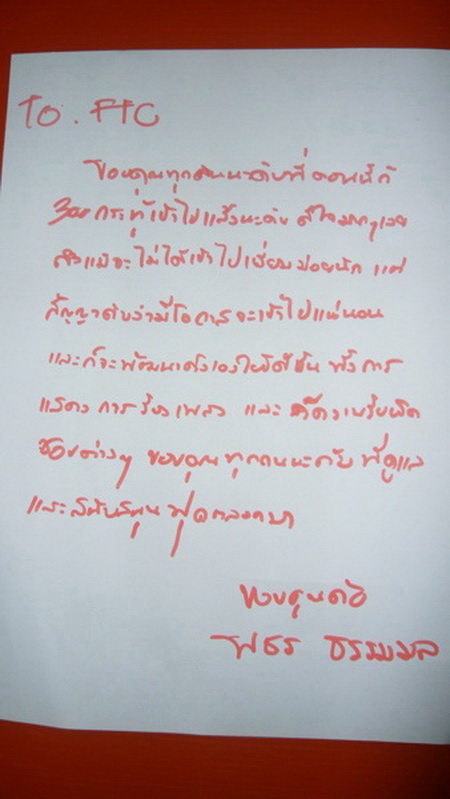 To. FTC
ขอบคุณทุกคนนะคับที่ตอนนี้ก็
300 กระทู้เข้าไปแล้วนะคับ ดีใจมากๆเลย
ถึงแม้จะไม่ได้เข้าไปเยี่ยมบ่อยนัก แต่
สัญญาคับว่ามีโอกาสจะเข้าไปแน่นอน
และก็จะพัฒนาตัวเองให้ดีขึ้น ทั้งการ
แสดง การร้องเพลง และ ความรับผิด
ชอบต่างๆ ขอบคุณทุกคนนะคับ ที่ดูแล
และสนับสนุน ตลอดมา
ขอบคุณคับ
ธรรมมล